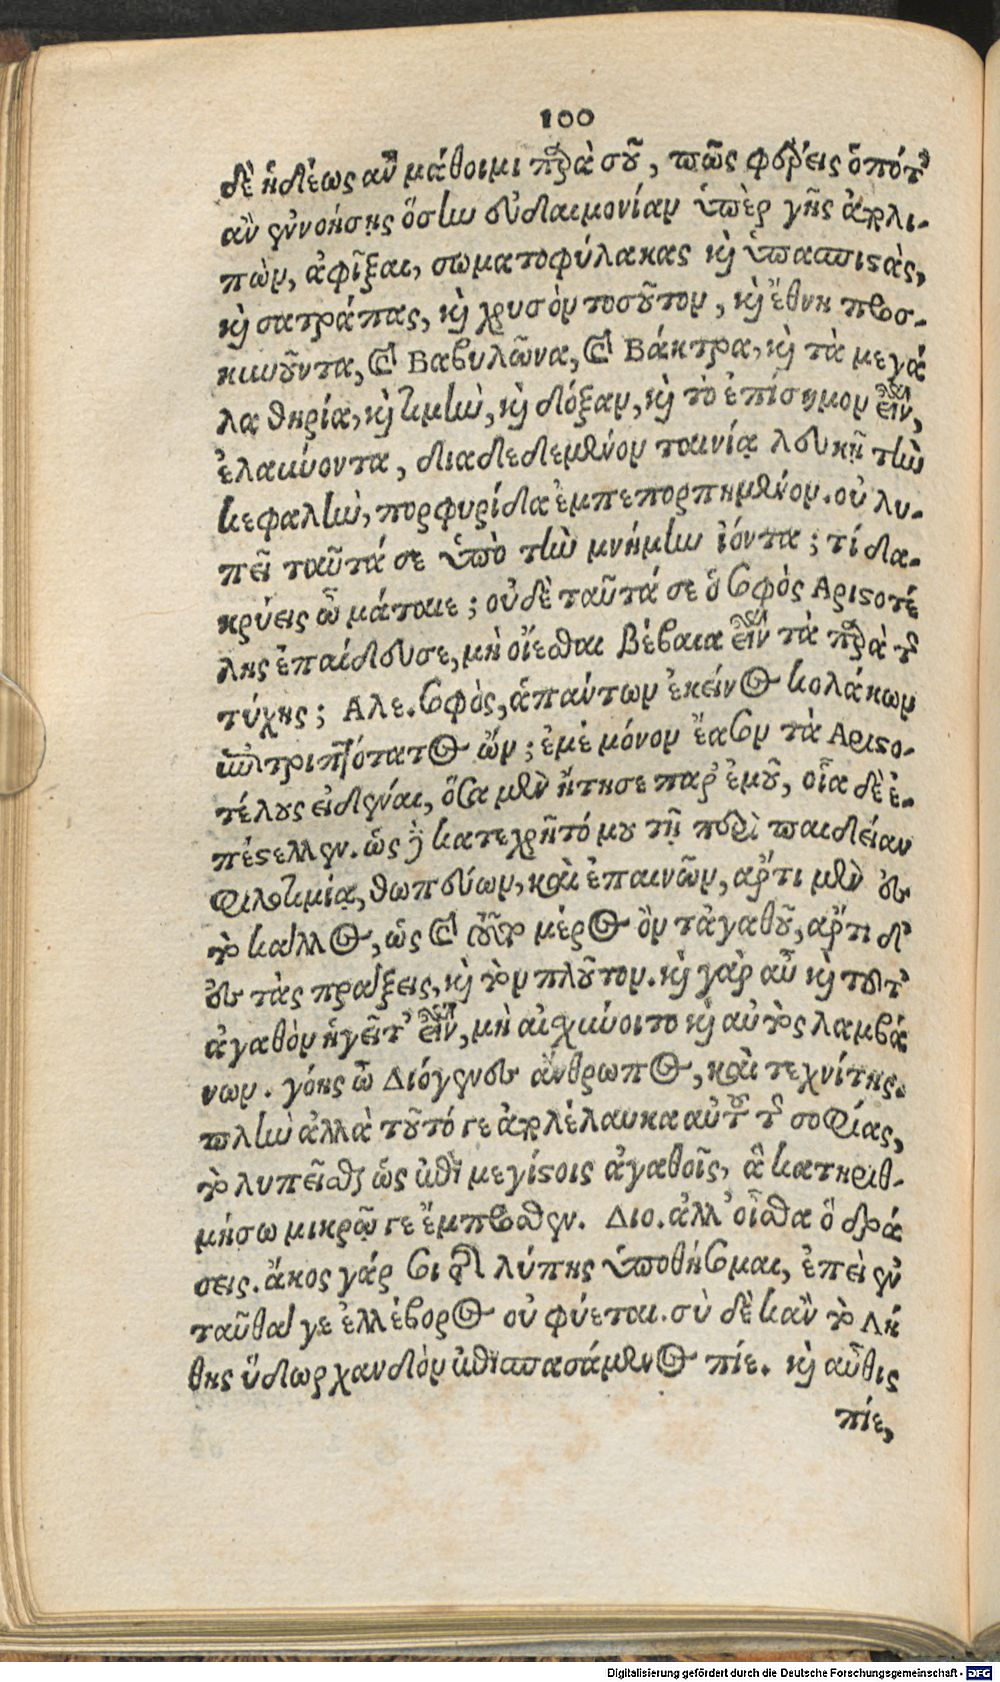 100
δὲ ἡδέως ἂν μάθοιμι παρὰ σοῦ, πῶς φέρεις ὁπότ'
ἂν ἐννοήσῃς ὅσην εὐδαιμονίαν ὑπὲρ γῆς ἀπολι-
πὼν, ἀφῖξαι, σωματοφύλακας καὶ ὑπασπιστὰς,
καὶ σατράπας, καὶ χρυσὸν τοσοῦτον, καὶ ἔθνη προσ-
κυνοῦντα, καὶ Βαβυλῶνα, καὶ Βάκτρα, καὶ τὰ μεγά
λα θηρία, καὶ τιμὴν, καὶ δόξαν, καὶ τὸ ἐπίσημον εἶναι,
ἐλαύνοντα, διαδεδεμένον ταινίᾳ λευκῇ τὴν
κεφαλὴν, πορφυρίδα ἐμπεπορπημένον. οὐ λυ-
πεῖ ταῦτά σε ὑπὸ τὴν μνήμην ἰόντα; τί δα-
κρύεις ὦ μάταιε; οὐδὲ ταῦτά σε ὁ σοφὸς Αριστοτέ
λης ἐπαίδευσε, μὴ οἴεσθαι βέβαια εἶναι τὰ παρὰ τῆς
τύχης; Αλε. σοφὸς, ἁπάντων ἐκεῖνος κολάκων
ἐπιτριπτότατος ὤν; ἐμὲ μόνον ἔασον τὰ Αριστο-
τέλους εἰδέναι, ὅσα μὲν ᾔτησε παρ' ἐμοῦ, οἷα δὲ ἐ-
πέστελλεν. ὡς δὲ κατεχρῆτό μου τῇ περὶ παιδείαν
φιλοτιμίᾳ, θωπεύων, καὶ ἐπαινῶν, ἄρτι μὲν ἐς
τὸ κάλλος, ὡς καὶ τοῦτο μέρος ὂν τἀγαθοῦ, ἄρτι δ'
ἐς τὰς πράξεις, καὶ τὸν πλοῦτον. καὶ γὰρ αὖ καὶ τοῦτ'
ἀγαθὸν ἡγεῖτ' εἶναι, μὴ αἰσχύνοιτο καὶ αὐτὸς λαμβά
νων. γόης ὦ Διόγενες ἄνθρωπος, καὶ τεχνίτης.
πλὴν ἀλλὰ τοῦτό γε ἀπολέλαυκα αὐτοῦ τῆς σοφίας,
τὸ λυπεῖσθαι ὡς ἐπὶ μεγίστοις ἀγαθοῖς, ἃ κατηριθ-
μήσω μικρῷ γε ἔμπροσθεν. Διο. ἀλλ' οἶσθα ὃ δρά
σεις. ἄκος γάρ σοι τῆς λύπης ὑποθήσομαι, ἐπεὶ ἐν
ταῦθά γε ἐλλέβορος οὐ φύεται. σὺ δὲ κἂν τὸ Λή
θης ὕδωρ χανδὸν ἐπισπασάμενος πίε. καὶ αὖθις
πίε,
Digitalisierung gefördert durch die Deutsche Forschungsgemeinschaft - DFG